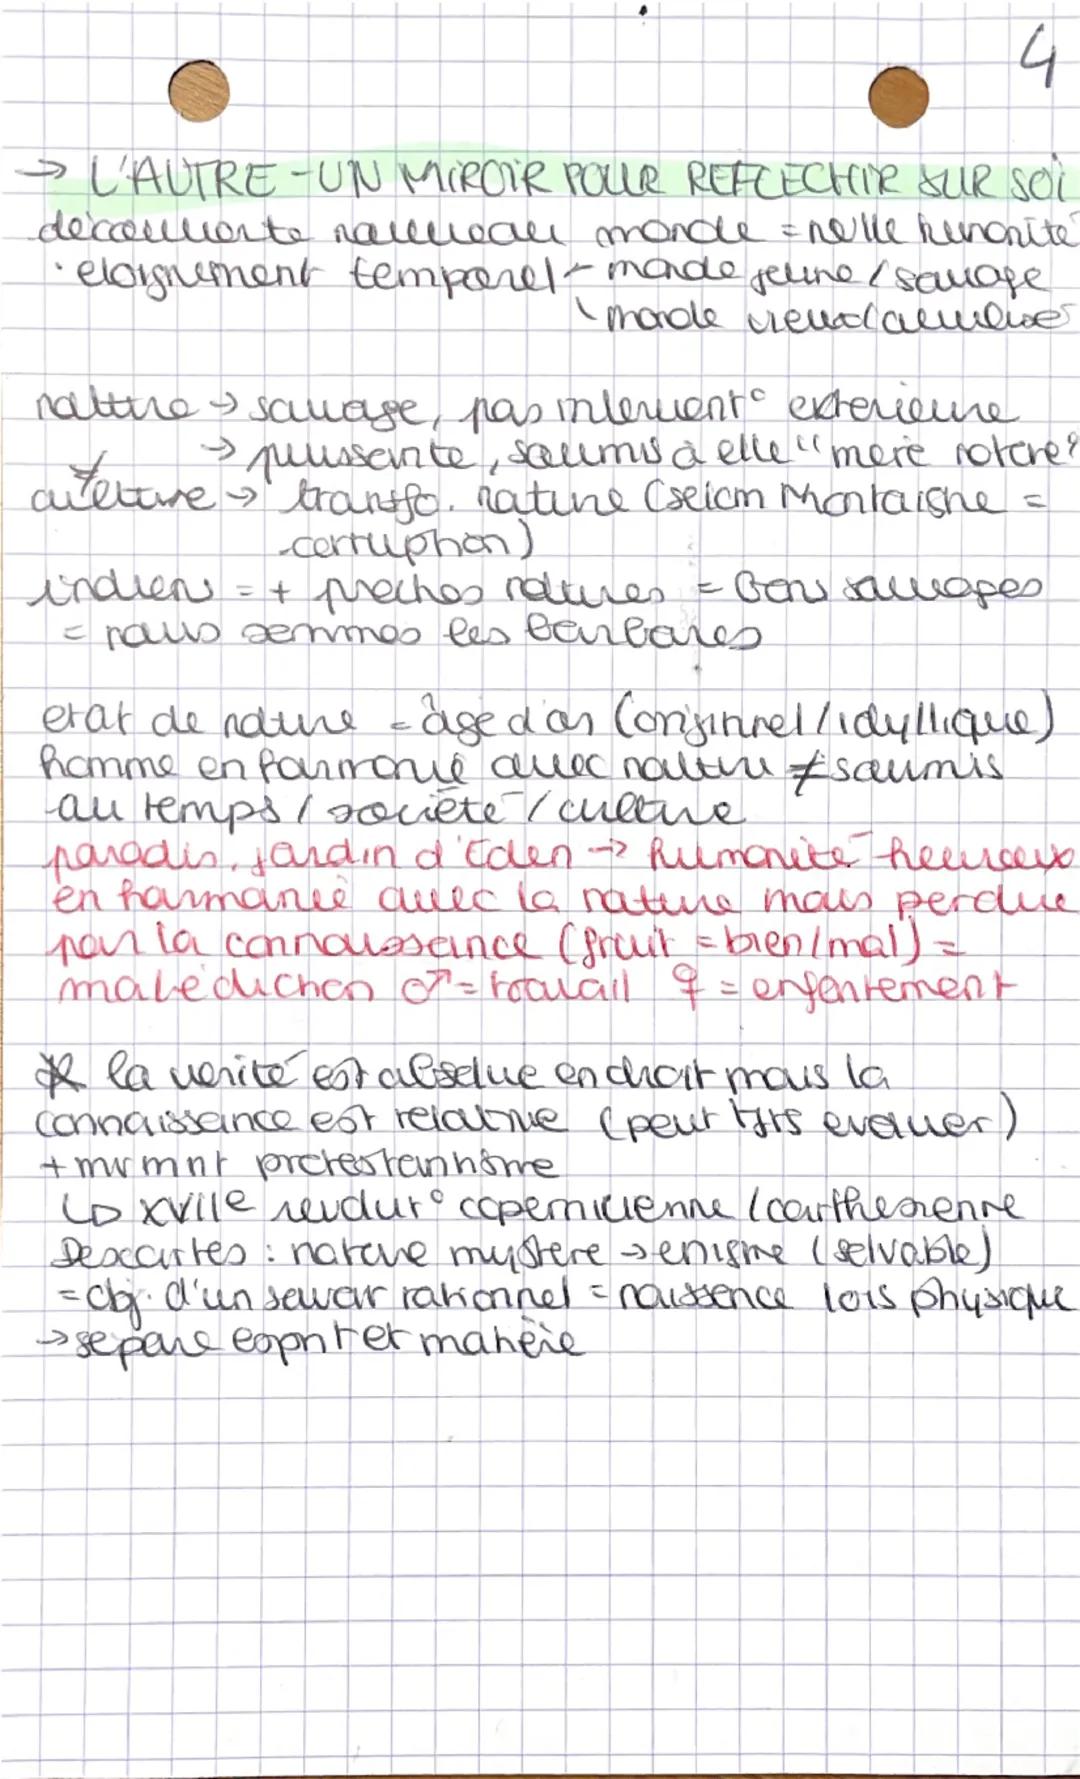 4
→ L'AUTRE - UN MIROIR POUR REFLECHIR SUR SOI
découverte nouveau monde = nelle humanité
· eloignement temporel - monde jeune / sauvage
\ monde vieux
nature → sauvage, pas intervent° exterieure
→ puissante, soumis à elle "mère nature"
≠
culture → transfo. nature (selon Montaigne =
corruption)
indiens = + proches natures = bons sauvages
= nous sommes les barbares
etat de nature = âge d'or (originnel / idyllique)
homme en harmonie avec nature ≠ soumis
au temps / société / culture
paradis, jardin d'Eden → humanité heureux
en harmonie avec la nature mais perdue
par la connaissance (fruit = bien/mal) =
malédiction ♂ = travail ♀ = enfentement
* la verité est absolue en droit mais la
connaissance est relative (peut tjrs evoluer)
+ mvmnt protestantisme
↳ XVIIe revolut° copernicienne / carthesienne
Descartes : nature mystere → enigme (solvable)
= obj. d'un savoir rationnel = naissence lois physique
→ sépare esprit et matière